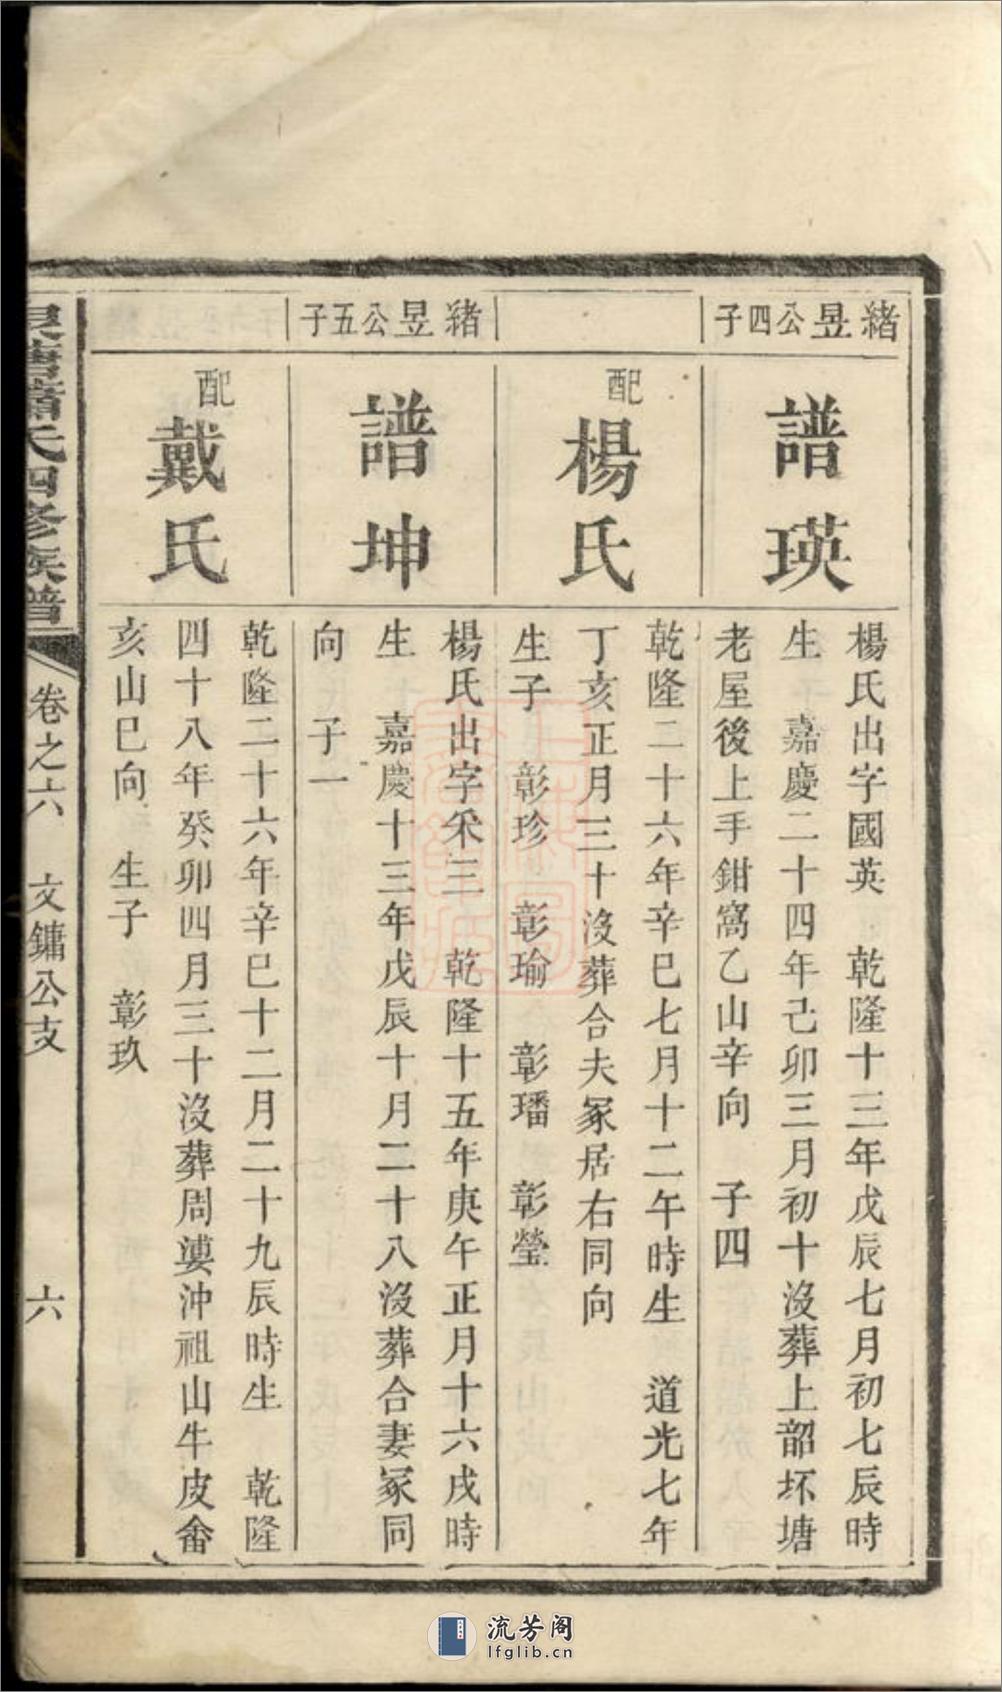 緒昱公四子
譜瑛
楊氏出字國英　乾隆十三年戊辰七月初七辰時
生　嘉慶二十四年己卯三月初十沒葬上韶坏塘
老屋後上手鉗窩乙山辛向　子四
配
楊氏
乾隆二十六年辛巳七月十二午時生　道光七年
丁亥正月三十沒葬合夫冢居右同向
生子　彰珍　彰瑜　彰璠　彰瑩
緒昱公五子
譜坤
楊氏出字釆三　乾隆十五年庚午正月十六戌時
生　嘉慶十三年戊辰十月二十八沒葬合妻冢同
向　子一
配
戴氏
乾隆二十六年辛巳十二月二十九辰時生　乾隆
四十八年癸卯四月三十沒葬周婁沖祖山牛皮畬
亥山巳向　生子　彰玖
蕭氏四修族譜
卷之六　文鏞公支
六
流芳阁
lfglib.cn